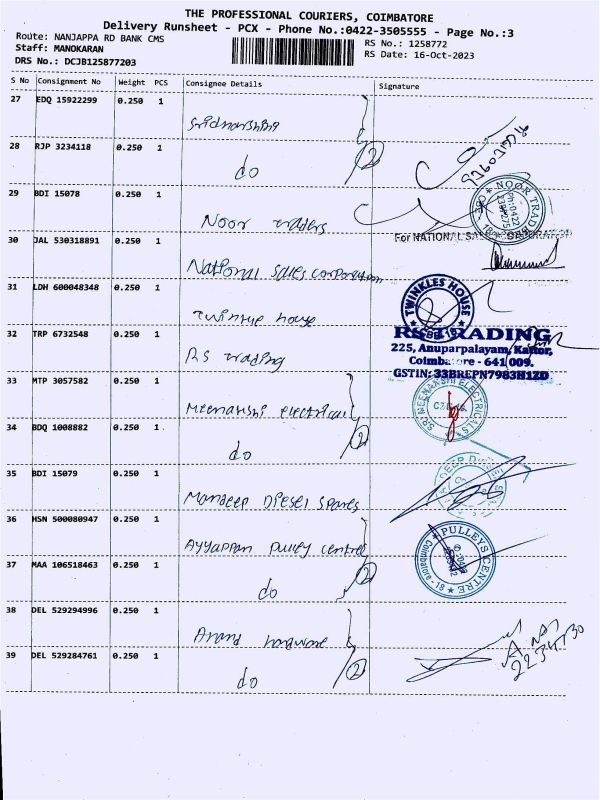 THE PROFESSIONAL COURIERS, COIMBATORE
Delivery Runsheet - PCX - Phone No.:0422-3505555 - Page No.:3
Route: NANJAPPA RD BANK CMS
RS No.: 1258772
Staff: MANOKARAN
RS Date: 16-Oct-2023
DRS No.: DCJB125877203
S No Consignment No Weight PCS Consignee Details Signature
27 EDQ 15922299 0.250 1
28 RJP 3234118 0.250 1 do (2)
29 BDI 15078 0.250 1 Noor traders
NOOR TRAD
For NATIONAL SALES CORPORATION
30 JAL 530318891 0.250 1 National sales corporation
31 LDH 600048348 0.250 1 Twinkle house
TWINKLES HOUSE
32 TRP 6732548 0.250 1 RS trading
RS TRADING
225, Anuparpalayam, Kattor,
Coimbatore - 641 009.
GSTIN: 33BREPN7983H1ZD
33 MTP 3057582 0.250 1 Meenakshi electrical
SRI MEENAKSHI ELECTRICALS
34 BDQ 1008882 0.250 1 do (2)
35 BDI 15079 0.250 1 Mandeep Diesel spares
36 HSN 500080947 0.250 1 Ayyappan pulley centre
PULLEYS CENTRE
Coimbatore - 18
37 MAA 106518463 0.250 1 do (2)
38 DEL 529294996 0.250 1 Anand hardware
39 DEL 529284761 0.250 1 do (2)